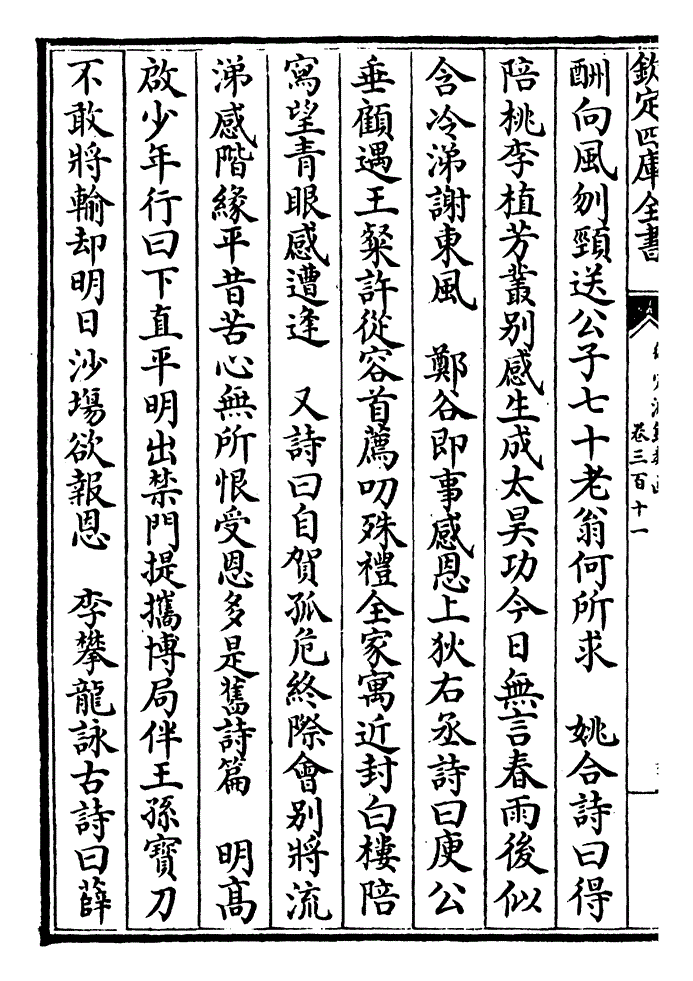 欽定四庫全書
卷三百十一
酬向風刎頸送公子七十老翁何所求　姚合詩曰得
陪桃李植芳叢別感生成太昊功今日無言春雨後似
含冷涕謝東風　鄭谷即事感恩上狄右丞詩曰庾公
垂顧遇王粲許從容首薦叨殊禮全家寓近封白樓陪
寫望青眼感遭逢　又詩曰自賀孤危終際會别將流
涕感階緣平昔苦心無所恨受恩多是舊詩篇　明高
啟少年行曰下直平明出禁門提攜博局伴王孫寶刀
不敢將輸却明日沙塲欲報恩　李攀龍詠古詩曰薛